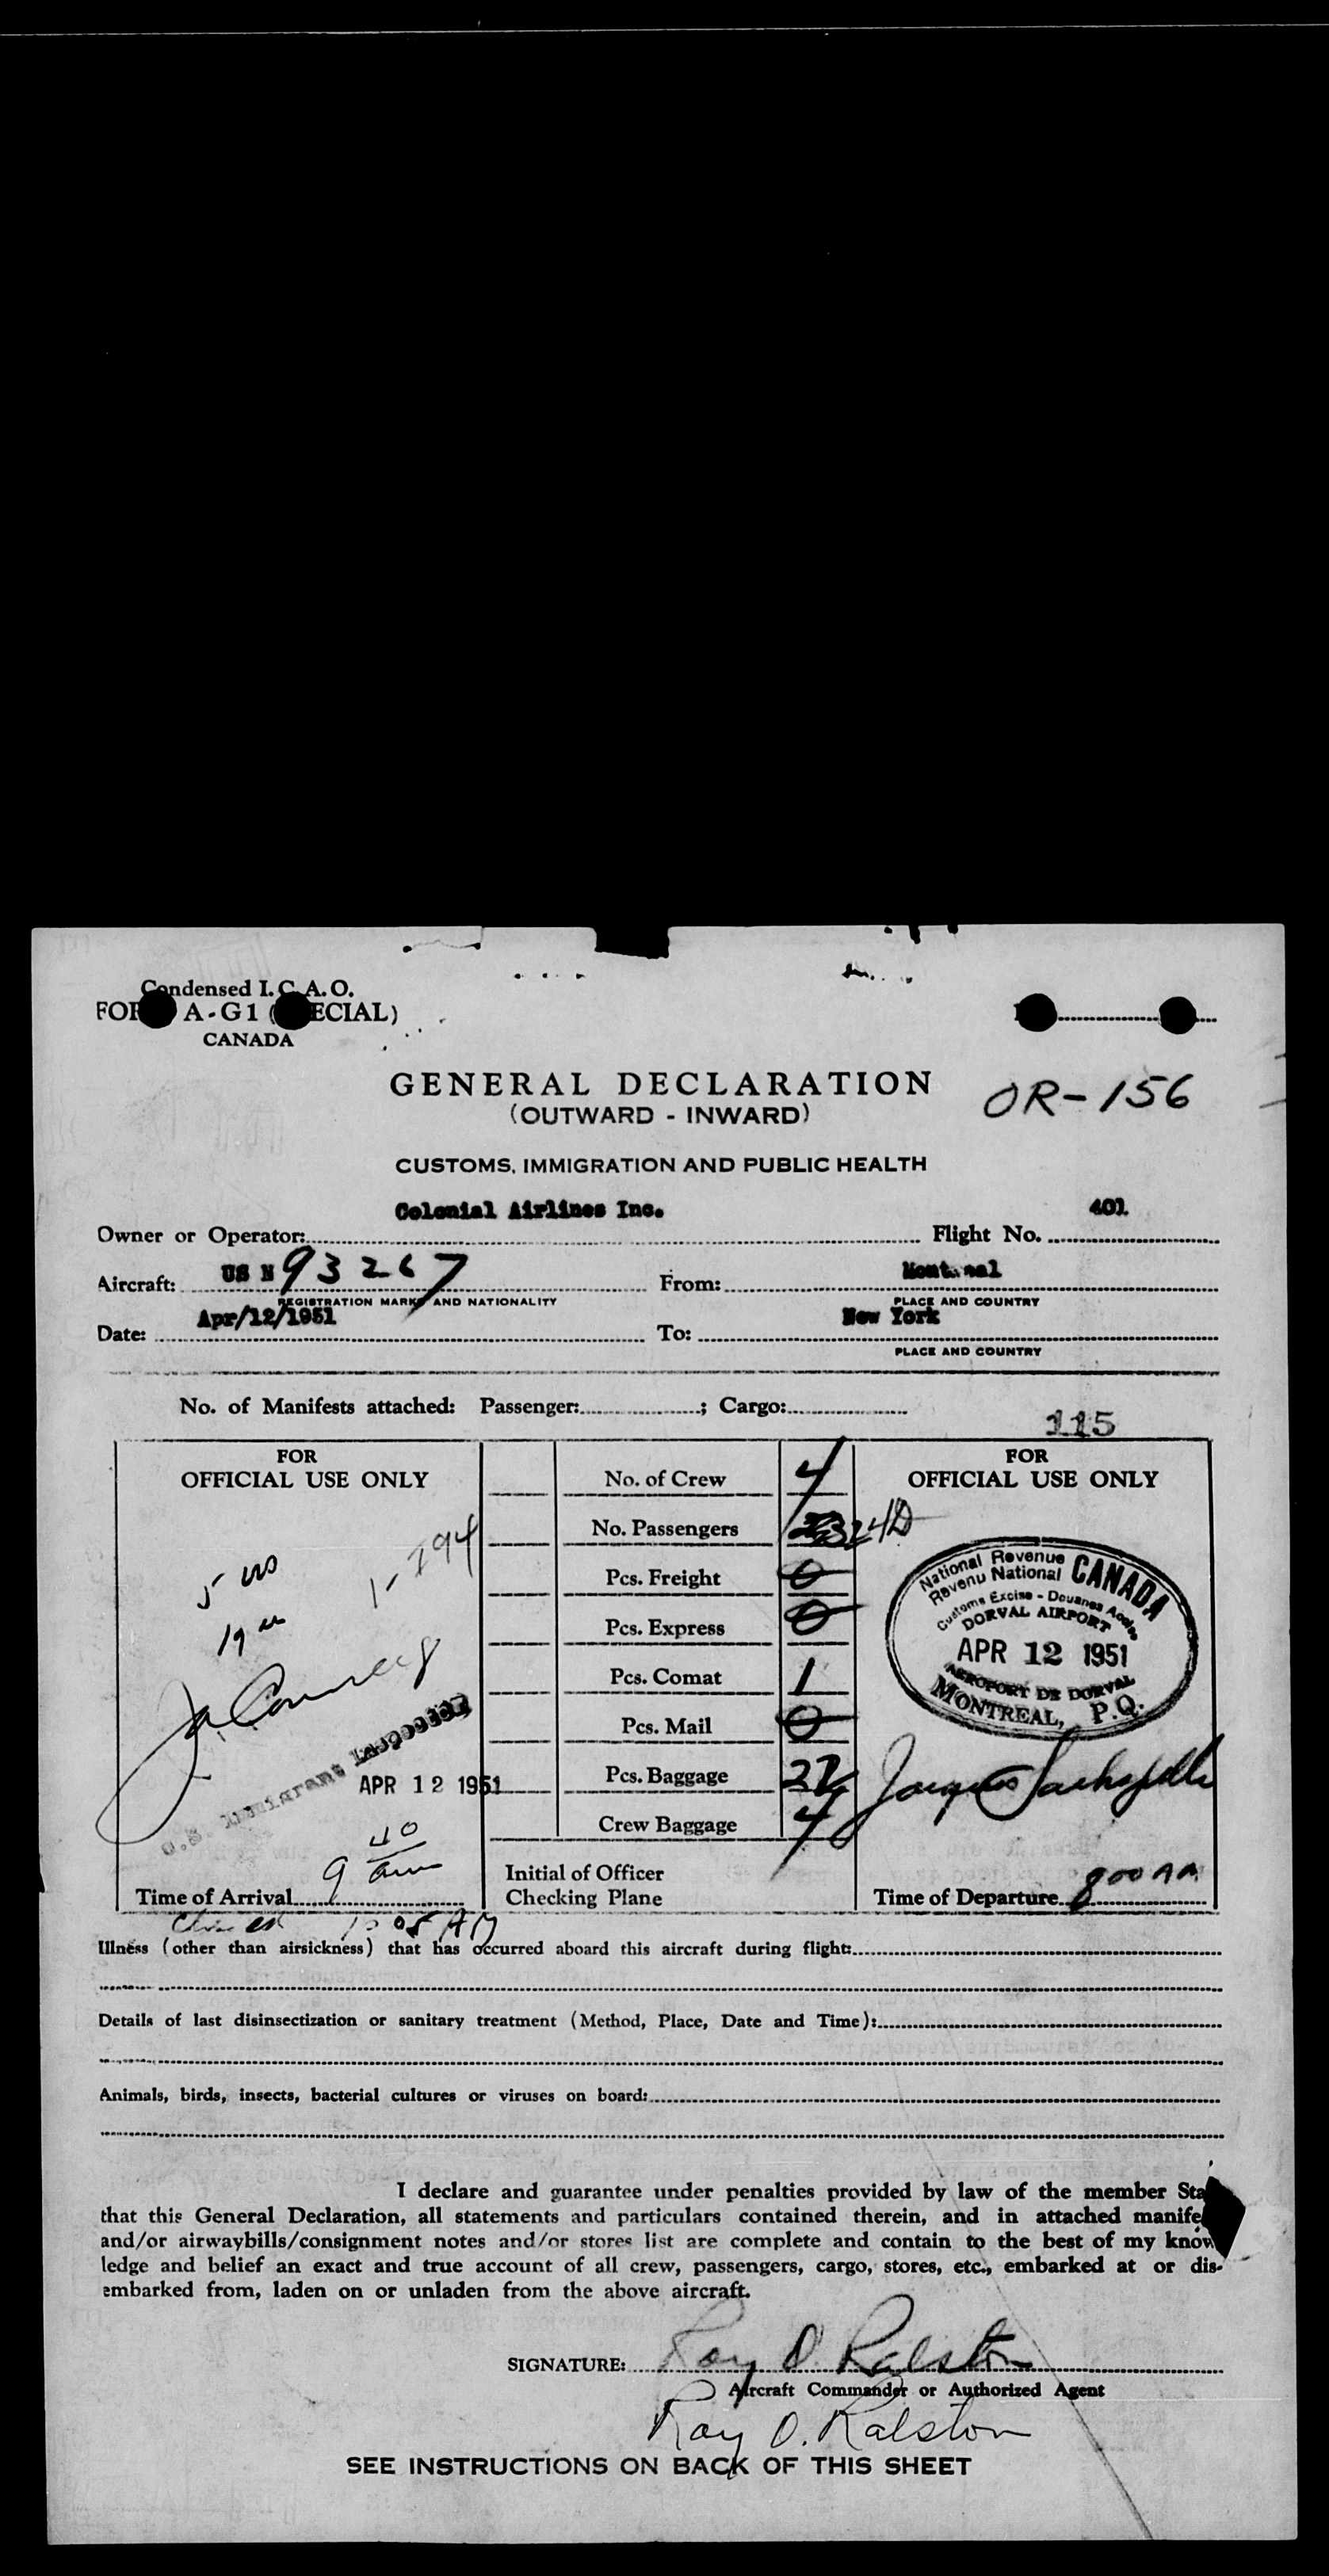 Condensed I.C.A.O.
FOR A-G1 ( ECIAL)
CANADA
GENERAL DECLARATION
OR-156
(OUTWARD - INWARD)
CUSTOMS, IMMIGRATION AND PUBLIC HEALTH
Owner or Operator: Colonial Airlines Inc. Flight No. 401
Aircraft: US N 93267 From: Montreal
REGISTRATION MARKS AND NATIONALITY PLACE AND COUNTRY
Date: Apr/12/1951 To: New York
PLACE AND COUNTRY
No. of Manifests attached: Passenger: ; Cargo:
115
FOR
OFFICIAL USE ONLY
5 us
APR 12 1951
9 40 am
Time of Arrival
10 05 AM
No. of Crew 4
No. Passengers
Pcs. Freight 0
Pcs. Express 0
Pcs. Comat 1
Pcs. Mail 0
Pcs. Baggage
Crew Baggage 4
Initial of Officer
Checking Plane
FOR
OFFICIAL USE ONLY
National Revenue
Revenu National
CANADA
Customs Excise - Douanes Accise
DORVAL AIRPORT
APR 12 1951
AEROPORT DE DORVAL
MONTREAL, P.Q.
Time of Departure 8 00 AM
Illness (other than airsickness) that has occurred aboard this aircraft during flight:
Details of last disinsectization or sanitary treatment (Method, Place, Date and Time):
Animals, birds, insects, bacterial cultures or viruses on board:
I declare and guarantee under penalties provided by law of the member Sta
that this General Declaration, all statements and particulars contained therein, and in attached manife
and/or airwaybills/consignment notes and/or stores list are complete and contain to the best of my know
ledge and belief an exact and true account of all crew, passengers, cargo, stores, etc., embarked at or dis-
embarked from, laden on or unladen from the above aircraft.
SIGNATURE: Roy O. Ralston
Aircraft Commander or Authorized Agent
Roy O. Ralston
SEE INSTRUCTIONS ON BACK OF THIS SHEET